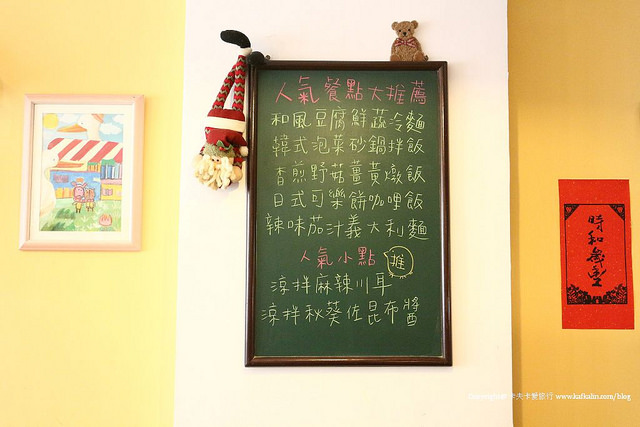 人氣餐點大推薦
和風豆腐鮮蔬冷麵
韓式泡菜砂鍋拌飯
香煎野菇薑黃燉飯
日式可樂餅咖哩飯
辣味茄汁義大利麵
人氣小點 推
涼拌麻辣川耳
涼拌秋葵佐昆布醬
時和歲豐
卡夫卡愛旅行 www.kafkalin.com/blog